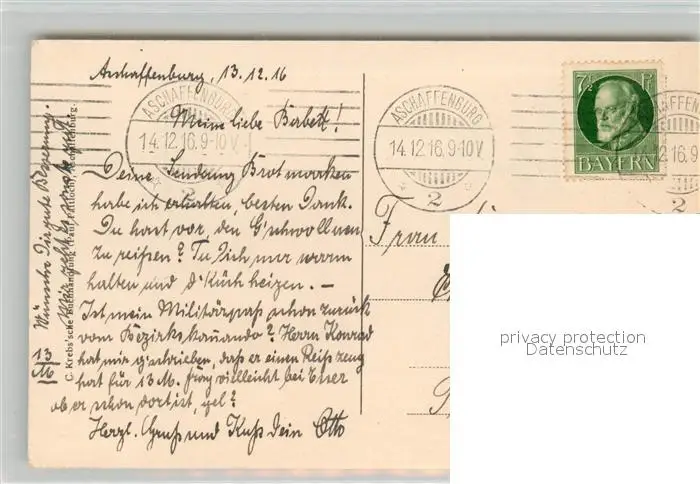 Aschaffenburg, 13.12.16
Meine liebe Babett!
Deine Sendung Brotmarken
habe ich erhalten, besten Dank.
Du hast vor, den G'schwollnen
zu reißen? Tu Dich nur warm
halten und d'Küch heizen. —
Ist mein Militärpaß schon zurück
vom Bezirkskommando? Herrn Konrad
hat mir g'schrieben, daß er einen Reißzeug
hat für 13 M. frag vielleicht bei Euer
ob er schon dort ist, gel?
Herzl. Gruß und Kuß Dein Otto
Wünsche Dir gute Besserung.
C. Krebs'sche Buchhandlung Aschaffenburg.
ASCHAFFENBURG
14.12.16.9-10V
2
ASCHAFFENBURG
14.12.16.9-10V
2
7½ Pf
BAYERN
2.16.9
2
Frau
privacy protection
Datenschutz